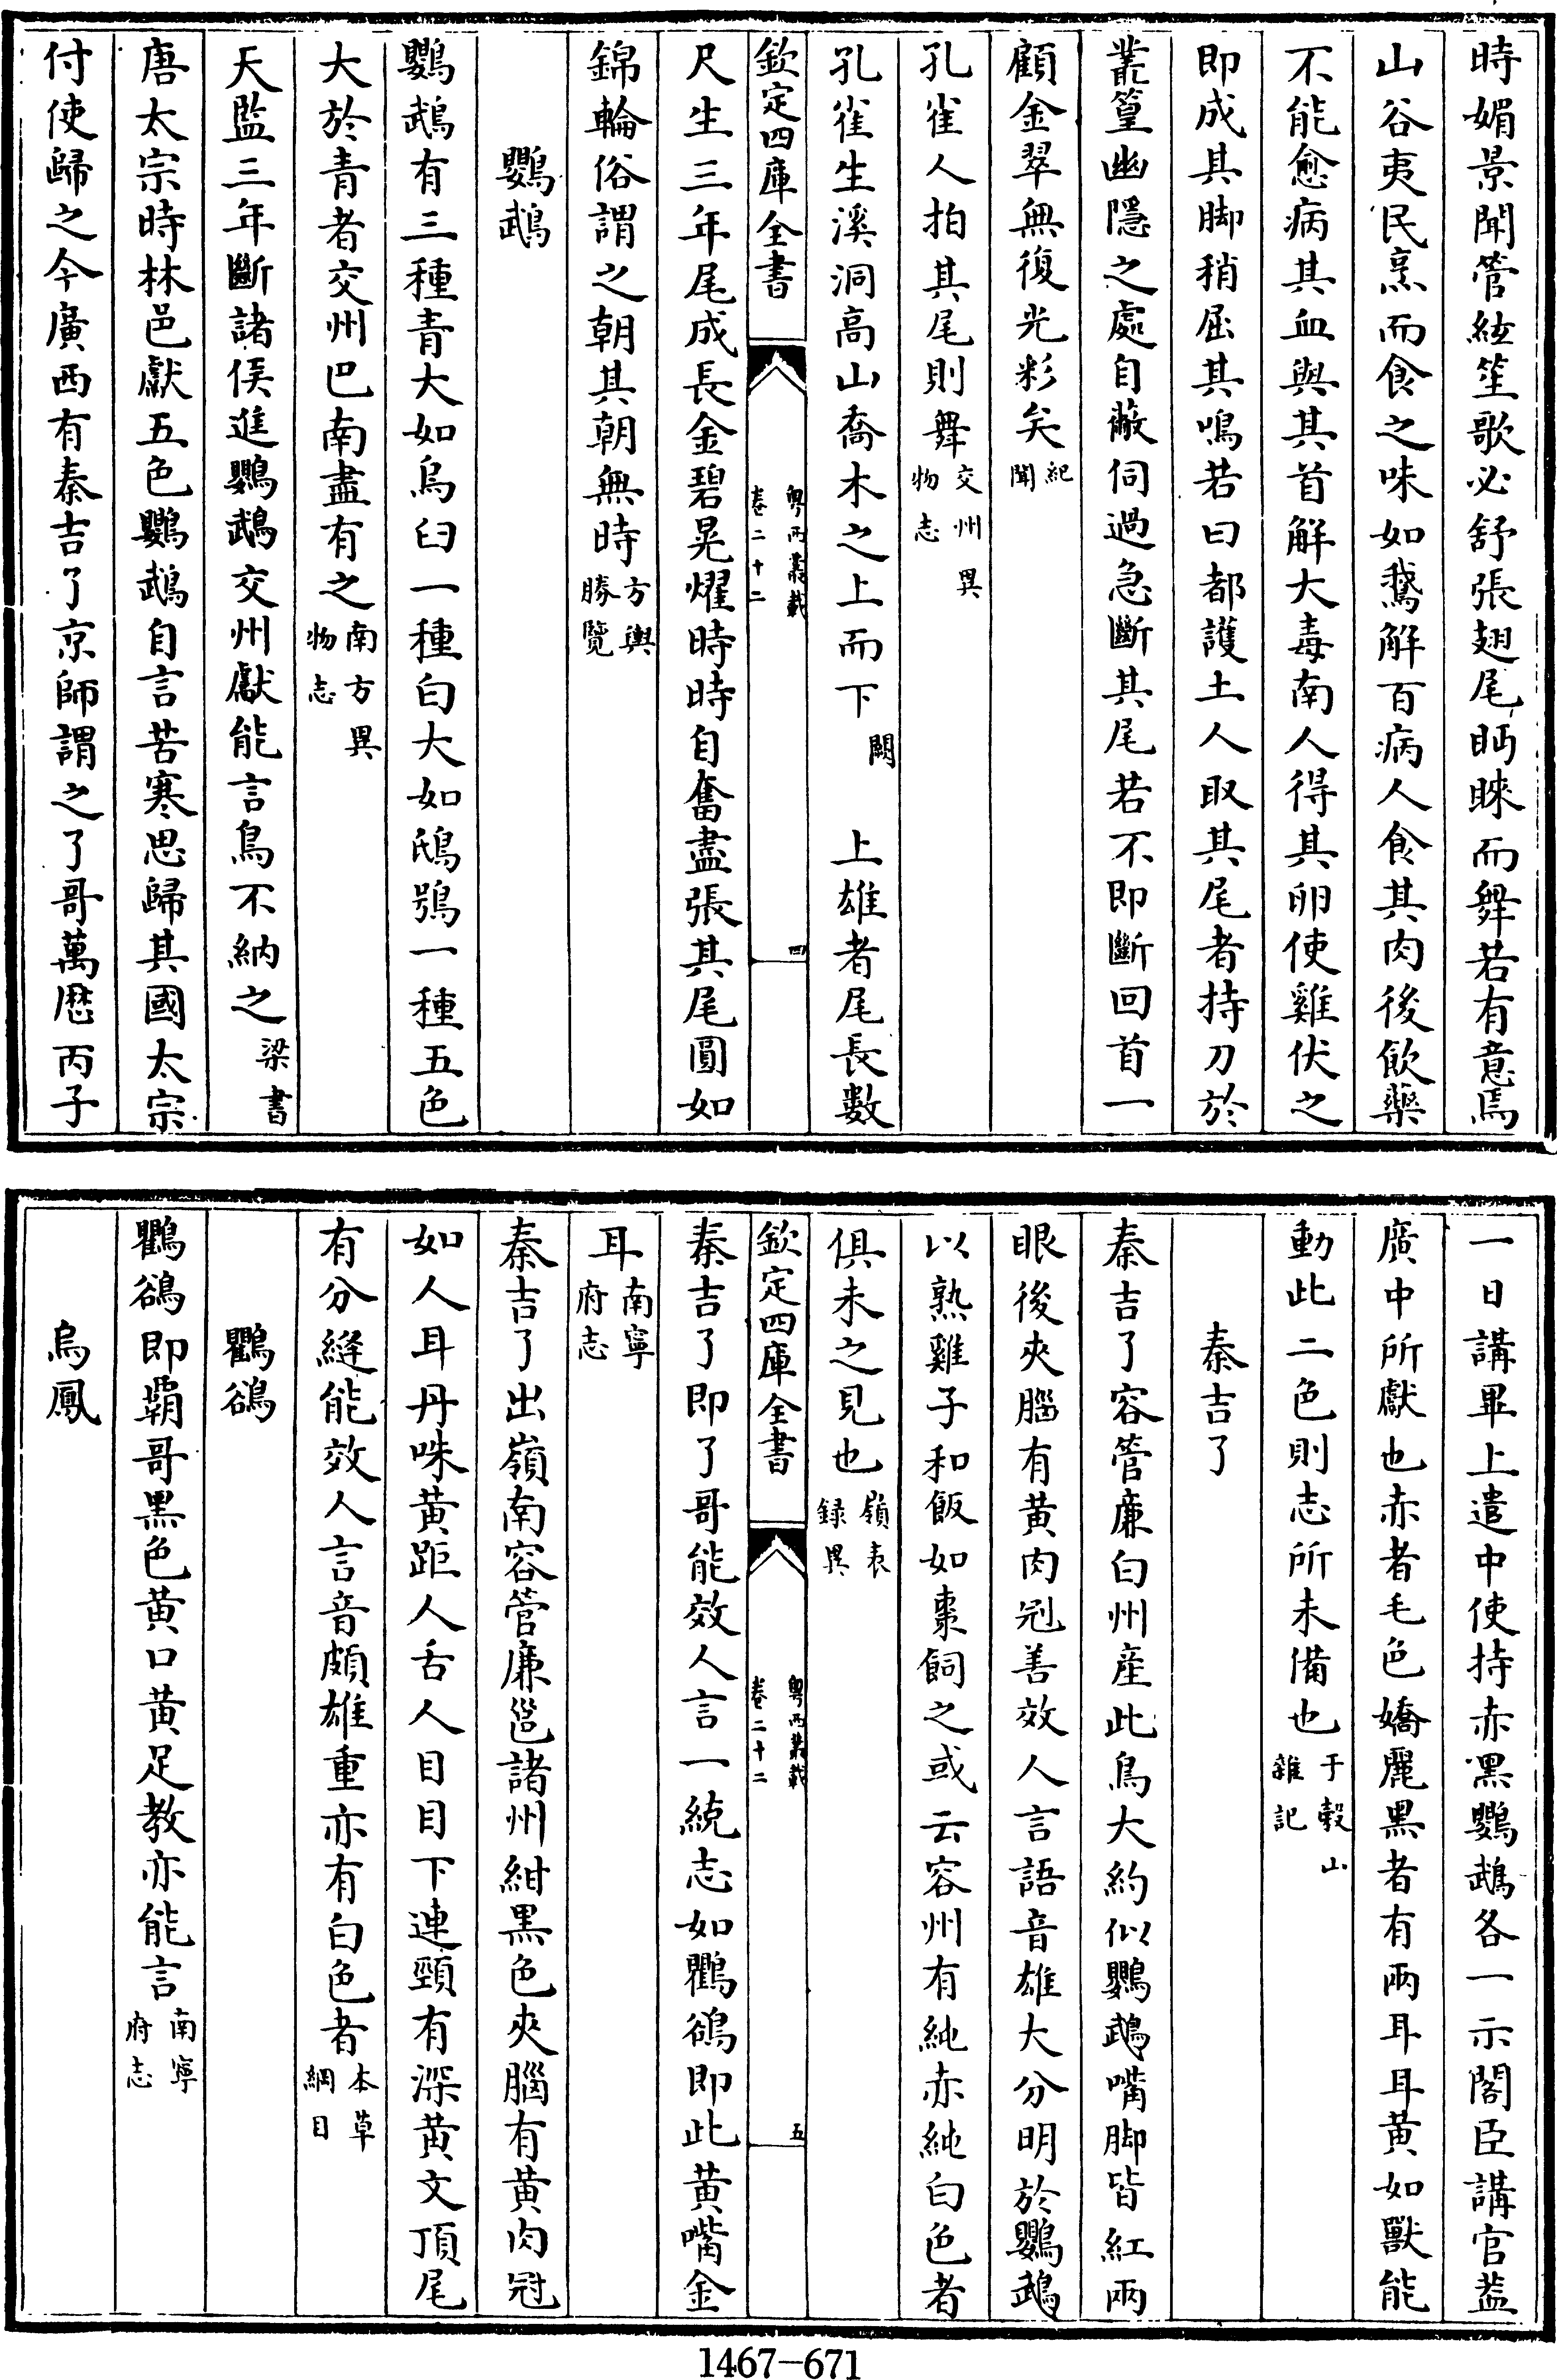 時媚景聞管絃笙歌必舒張翅尾眄睞而舞若有意焉
山谷夷民烹而食之味如鵞解百病人食其肉後飲藥
不能愈病其血與其首解大毒南人得其卵使雞伏之
即成其脚稍屈其鳴若曰都護土人取其尾者持刀於
叢篁幽隱之處自蔽伺過急斷其尾若不即斷回首一
顧金翠無復光彩矣紀聞
孔雀人拍其尾則舞交州異物志
孔雀生溪洞高山喬木之上而下闕　上雄者尾長數
欽定四庫全書　粤西叢載　卷二十二　四
尺生三年尾成長金碧晃燿時時自奮盡張其尾圓如
錦輪俗謂之朝其朝無時方輿勝覽
鸚鵡
鸚鵡有三種青大如烏臼一種白大如鴟鴞一種五色
大於青者交州巴南盡有之南方異物志
天監三年斷諸侯進鸚鵡交州獻能言鳥不納之梁書
唐太宗時林邑獻五色鸚鵡自言苦寒思歸其國太宗
付使歸之今廣西有秦吉了京師謂之了哥萬厯丙子
一日講畢上遣中使持赤黑鸚鵡各一示閣臣講官葢
廣中所獻也赤者毛色嬌麗黑者有兩耳耳黄如獸能
動此二色則志所未備也于穀山雜記
秦吉了
秦吉了容管廉白州産此鳥大約似鸚鵡嘴脚皆紅兩
眼後夾腦有黄肉冠善效人言語音雄大分明於鸚鵡
以熟雞子和飯如棗飼之或云容州有純赤純白色者
俱未之見也嶺表録異
欽定四庫全書　粤西叢載　卷二十二　五
秦吉了即了哥能效人言一統志如鸜鵒即此黄嘴金
耳南寧府志
秦吉了出嶺南容管廉邕諸州紺黒色夾腦有黄肉冠
如人耳丹咮黄距人舌人目目下連頸有深黄文頂尾
有分縫能效人言音頗雄重亦有白色者本草綱目
鸜鵒
鸜鵒即覇哥黑色黄口黄足教亦能言南寧府志
烏鳳
1467-671